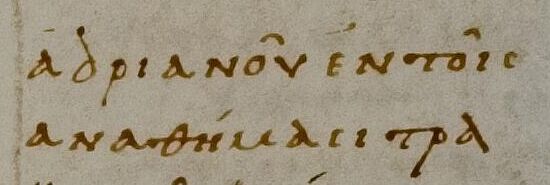 ἀδριανοῦ ἐν τοῖς
ἀναθήμασι τρα